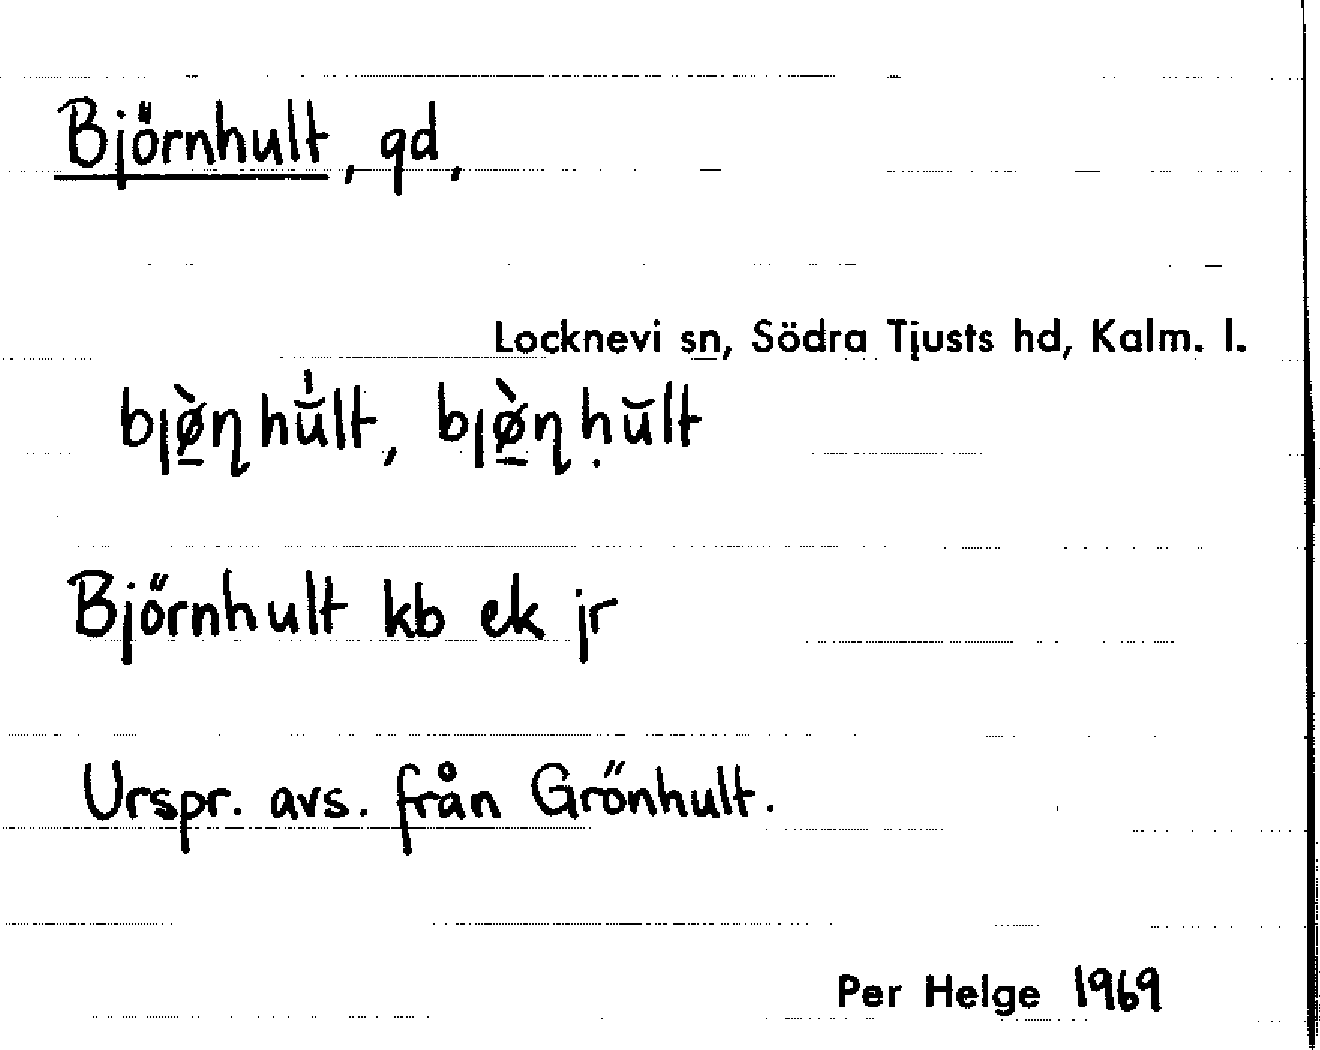 Björnhult, gd,
Locknevi sn, Södra Tjusts hd, Kalm. l.
bjø̠̀ɳhŭ̍lt, bjø̠̀ɳḥŭlt
Björnhult kb ek jr
Urspr. avs. från Grönhult.
Per Helge 1969